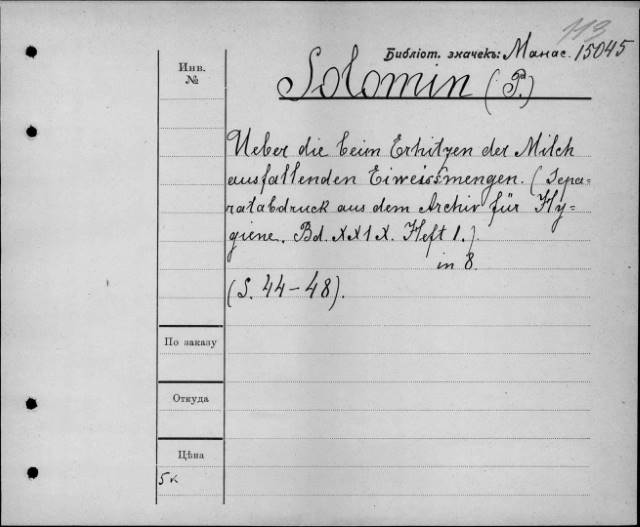 113
Библіот. значекъ: Манас. 15045
Инв. №
Solomin (P.)
Ueber die beim Erhitzen der Milch
ausfallenden Eiweissmengen. (Sepa-
ratabdruck aus dem Archiv für Hy-
giene. Bd. XXIX. Heft 1.)
in 8.
(S. 44-48).
По заказу
Откуда
Цѣна
5к